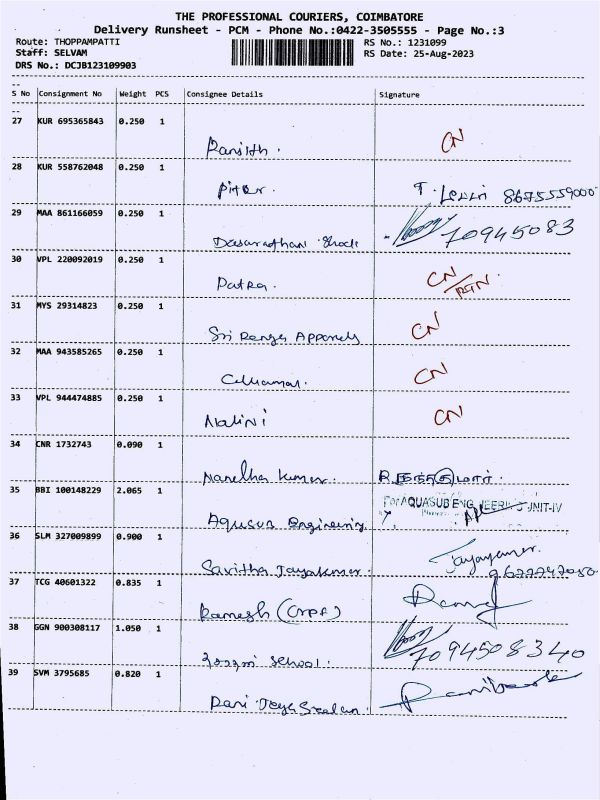 THE PROFESSIONAL COURIERS, COIMBATORE
Delivery Runsheet - PCM - Phone No.:0422-3505555 - Page No.:3
Route: THOPPAMPATTI RS No.: 1231099
Staff: SELVAM RS Date: 25-Aug-2023
DRS No.: DCJB123109903
S No Consignment No Weight PCS Consignee Details Signature
27 KUR 695365843 0.250 1
Ranjith. CN
28 KUR 558762048 0.250 1
Piter. 8675559000
29 MAA 861166059 0.250 1
Dasarathan 70945083
30 VPL 220092019 0.250 1
Patra. CN/RTN
31 MYS 29314823 0.250 1
Sri Ranga Apparels CN
32 MAA 943585265 0.250 1
CN
33 VPL 944474885 0.250 1
Nalini CN
34 CNR 1732743 0.090 1
Kumar.
35 BBI 100148229 2.065 1
For AQUASUB ENGINEERING UNIT-IV
Aquasub Engineering
36 SLM 327009899 0.900 1
Savitha Jayakumar. Jayakumar.
37 TCG 40601322 0.835 1
Ramesh (CRPF)
38 GGN 900308117 1.050 1
School. 7094508340
39 SVM 3795685 0.820 1
Rani Jeya